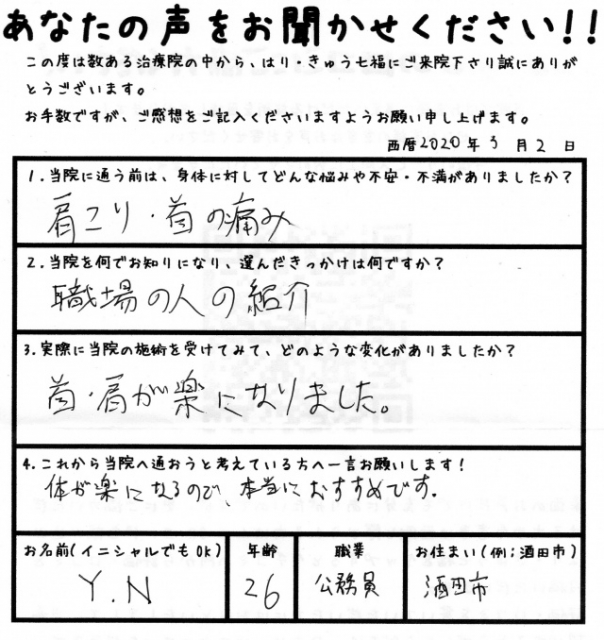 あなたの声をお聞かせください!!
この度は数ある治療院の中から、はり・きゅう七福にご来院下さり誠にありが
とうございます。
お手数ですが、ご感想をご記入くださいますようお願い申し上げます。
西暦2020年3月2日
1.当院に通う前は、身体に対してどんな悩みや不安・不満がありましたか?
肩こり・首の痛み
2.当院を何でお知りになり、選んだきっかけは何ですか?
職場の人の紹介
3.実際に当院の施術を受けてみて、どのような変化がありましたか?
首・肩が楽になりました。
4.これから当院へ通おうと考えている方へ一言お願いします!
体が楽になるので、本当におすすめです.
お名前(イニシャルでもOK) 年齢 職業 お住まい(例;酒田市)
Y.N 26 公務員 酒田市